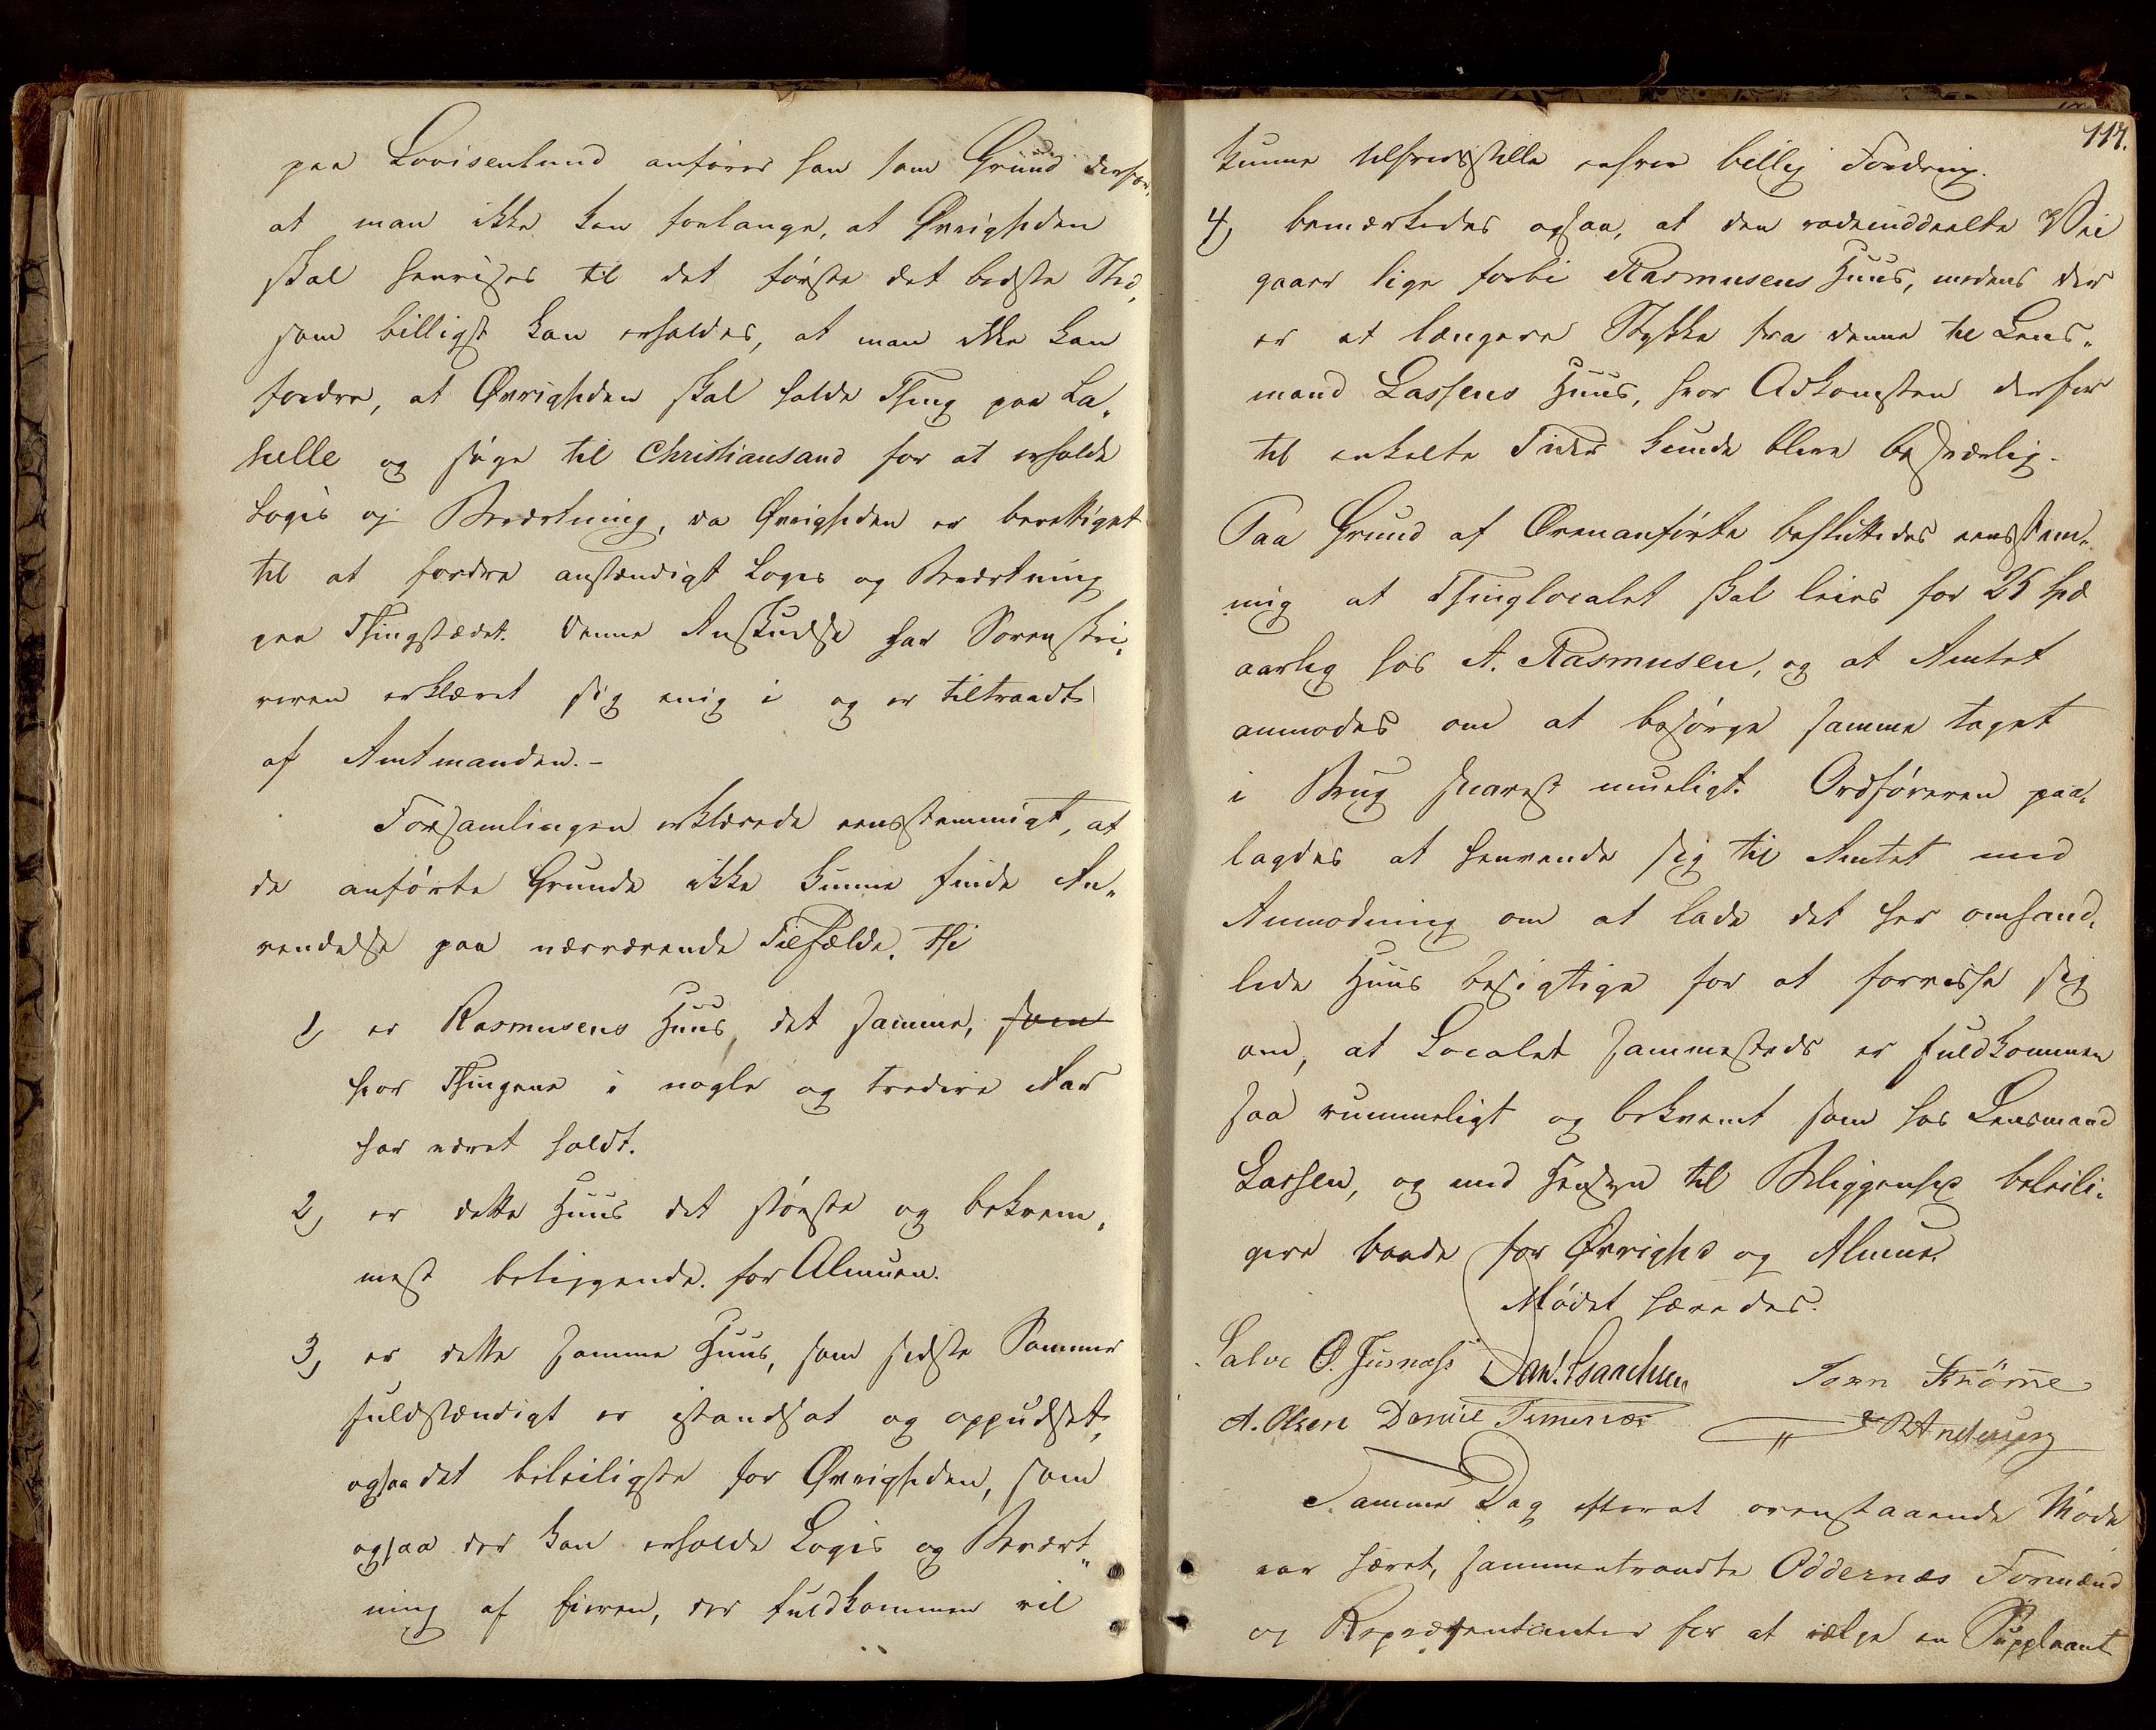 paa Lovisenlund anfører han som Grund derfor,
at man ikke kan forlange, at Øvrigheden
skal henvises til det første det bedste Sted,
som billigst kan erholdes, at man ikke kan
fordre, at Øvrigheden skal holde Thing paa La-
helle og søge til Christiansand for at erholde
Logis og Beværtning, da Øvrigheden er berettiget
til at fordre anstændigt Logis og Beværtning
paa Thingstedet. Denne Anskuelse har Sorenskri-
veren erklæret sig enig i og er tiltraadt
af Amtmanden. -
Forsamlingen erklærede eensstemmigt, at
de anførte Grunde ikke kunne finde An-
vendelse paa nærværende Tilfælde, thi
1, er Rasmusens Huus det samme, som
hvor Thingene i nogle og tredive Aar
har været holdt.
2, er dette Huus det største og bekvem-
mest beliggende for Almuen.
3, er dette samme Huus, som sidste Sommer
fuldstændigt er istandsat og oppudset,
ogsaa det beleiligste for Øvrigheden, som
ogsaa der kan erholde Logis og Bevært-
ning af Eieren, der fuldkommen vil
117.
kunne tilfredsstille enhver billig Fordring.
4, bemærkedes ogsaa, at den rodeinddeelte Vei
gaaer lige forbi Rasmusens Huus, medens der
er et længere Stykke fra denne til Lens-
mand Lassens Huus, hvor Adkomsten derfor
til enkelte Tider kunde blive besværlig.
Paa Grund af Ovenanførte besluttedes eensstem-
mig at Thinglocalet skal leies for 25 Spd
aarlig hos A. Rasmusen, og at Amtet
anmodes om at besørge samme taget
i Brug snarest mueligt. Ordføreren paa-
lagdes at henvende sig til Amtet med
Anmodning om at lade det her omhand-
lede Huus besigtige for at forvisse sig
om, at Localet sammesteds er fuldkommen
saa rummeligt og bekvemt som hos Lensmand
Lassen, og med Hensyn til Beliggenhed beleili-
gere baade for Øvrighed og Almue.
Mødet hævedes.
Salve O. Danl. Isaachsen Tørn Strømme
A. Olsen Daniel Timenes
Samme Dag efterat ovenstaaende Møde
var hævet, sammentraadte Oddernæs Formænd
og Repræsentanter for at vælge en Suppleant